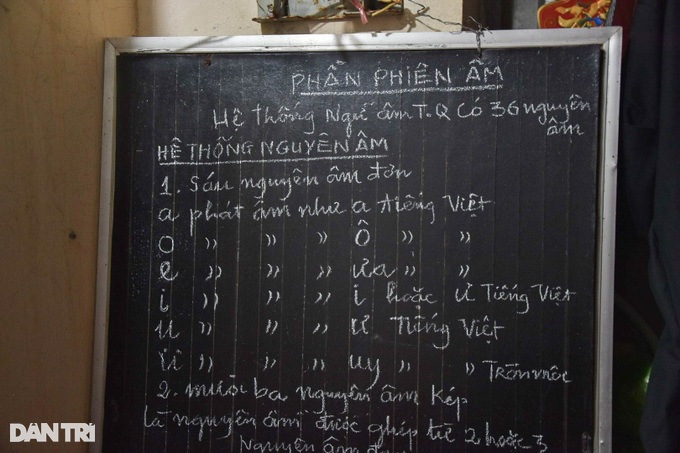 PHẦN PHIÊN ÂM
Hệ thống Ngữ âm T.Q Có 36 nguyên
âm
HỆ THỐNG NGUYÊN ÂM
1. Sáu nguyên âm đơn
a phát âm như a tiếng Việt
o ,, ,, ,, Ô ,, ,,
e ,, ,, ,, ưa ,, ,,
i ,, ,, ,, i hoặc ư Tiếng Việt
u ,, ,, ,, ư Tiếng Việt
ü ,, ,, ,, uy ,, ,, Tròn môi
2. mười ba nguyên âm kép
là nguyên âm được ghép từ 2 hoặc 3
Nguyên âm đơn
DÂN TRÍ